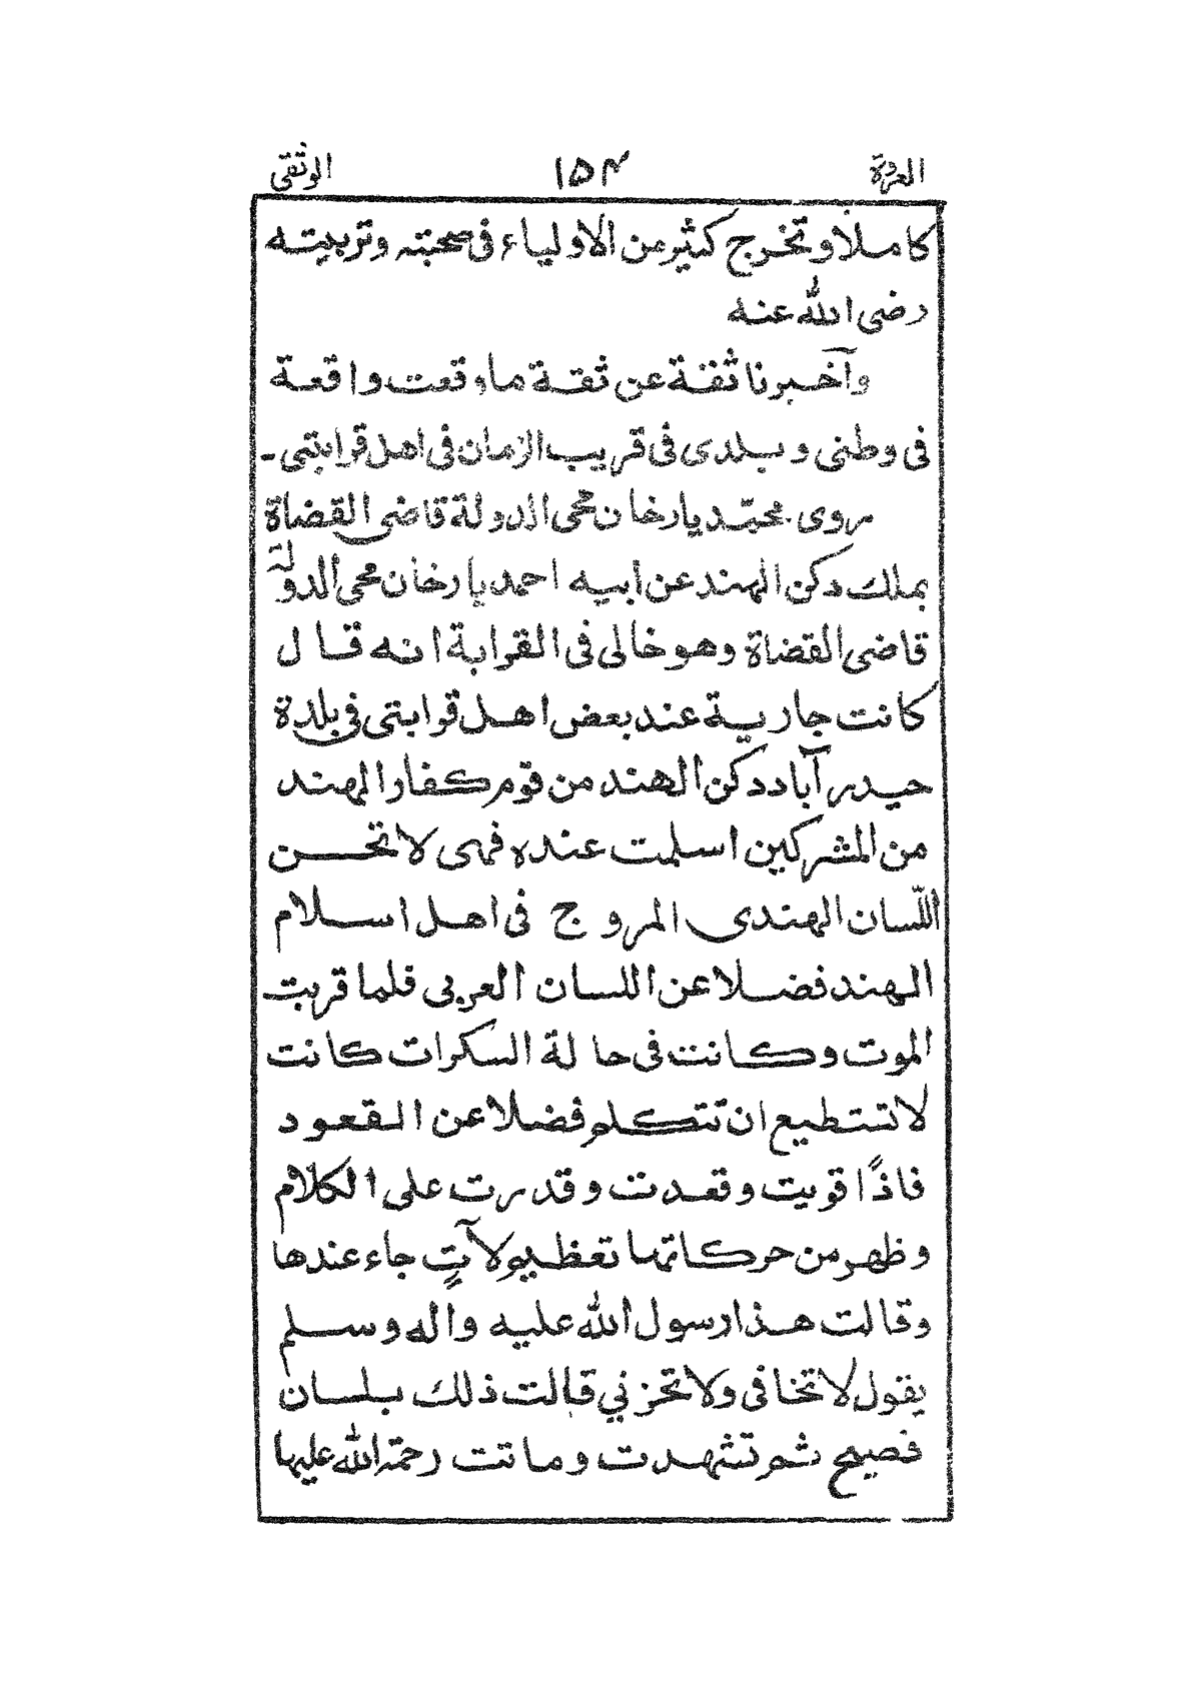 العروة ١٥٤ الوثقى
كاملا وتخرج كثير من الاولياء فى صحبته وتربيته
رضى الله عنه
وآخبرنا ثقة عن ثقة ما وقعت واقعة
فى وطنى وبلدى فى قريب الزمان فى اهل قرابتى۔
روى محمّد يار خان محى الدولة قاضى القضاة
بملك دكن الهند عن ابيه احمد يار خان محى الدولة
قاضى القضاة وهو خالى فى القرابة انه قال
كانت جارية عند بعض اهل قرابتى فى بلدة
حيدر آباد دكن الهند من قوم كفار الهند
من المشركين اسلمت عنده فهى لا تحسن
اللّسان الهندى المروج فى اهل اسلام
الهند فضلا عن اللسان العربى فلما قربت
الموت وكانت فى حالة السكرات كانت
لا تستطيع ان تتكلم فضلا عن القعود
فاذًا قويت وقعدت وقدرت على الكلام
وظهر من حركاتها تعظيم لآتٍ جاء عندها
وقالت هذا رسول الله عليه واله وسلم
يقول لا تخافى ولا تحزني قالت ذلك بلسان
فصيح ثم تشهدت وماتت رحمة الله عليها